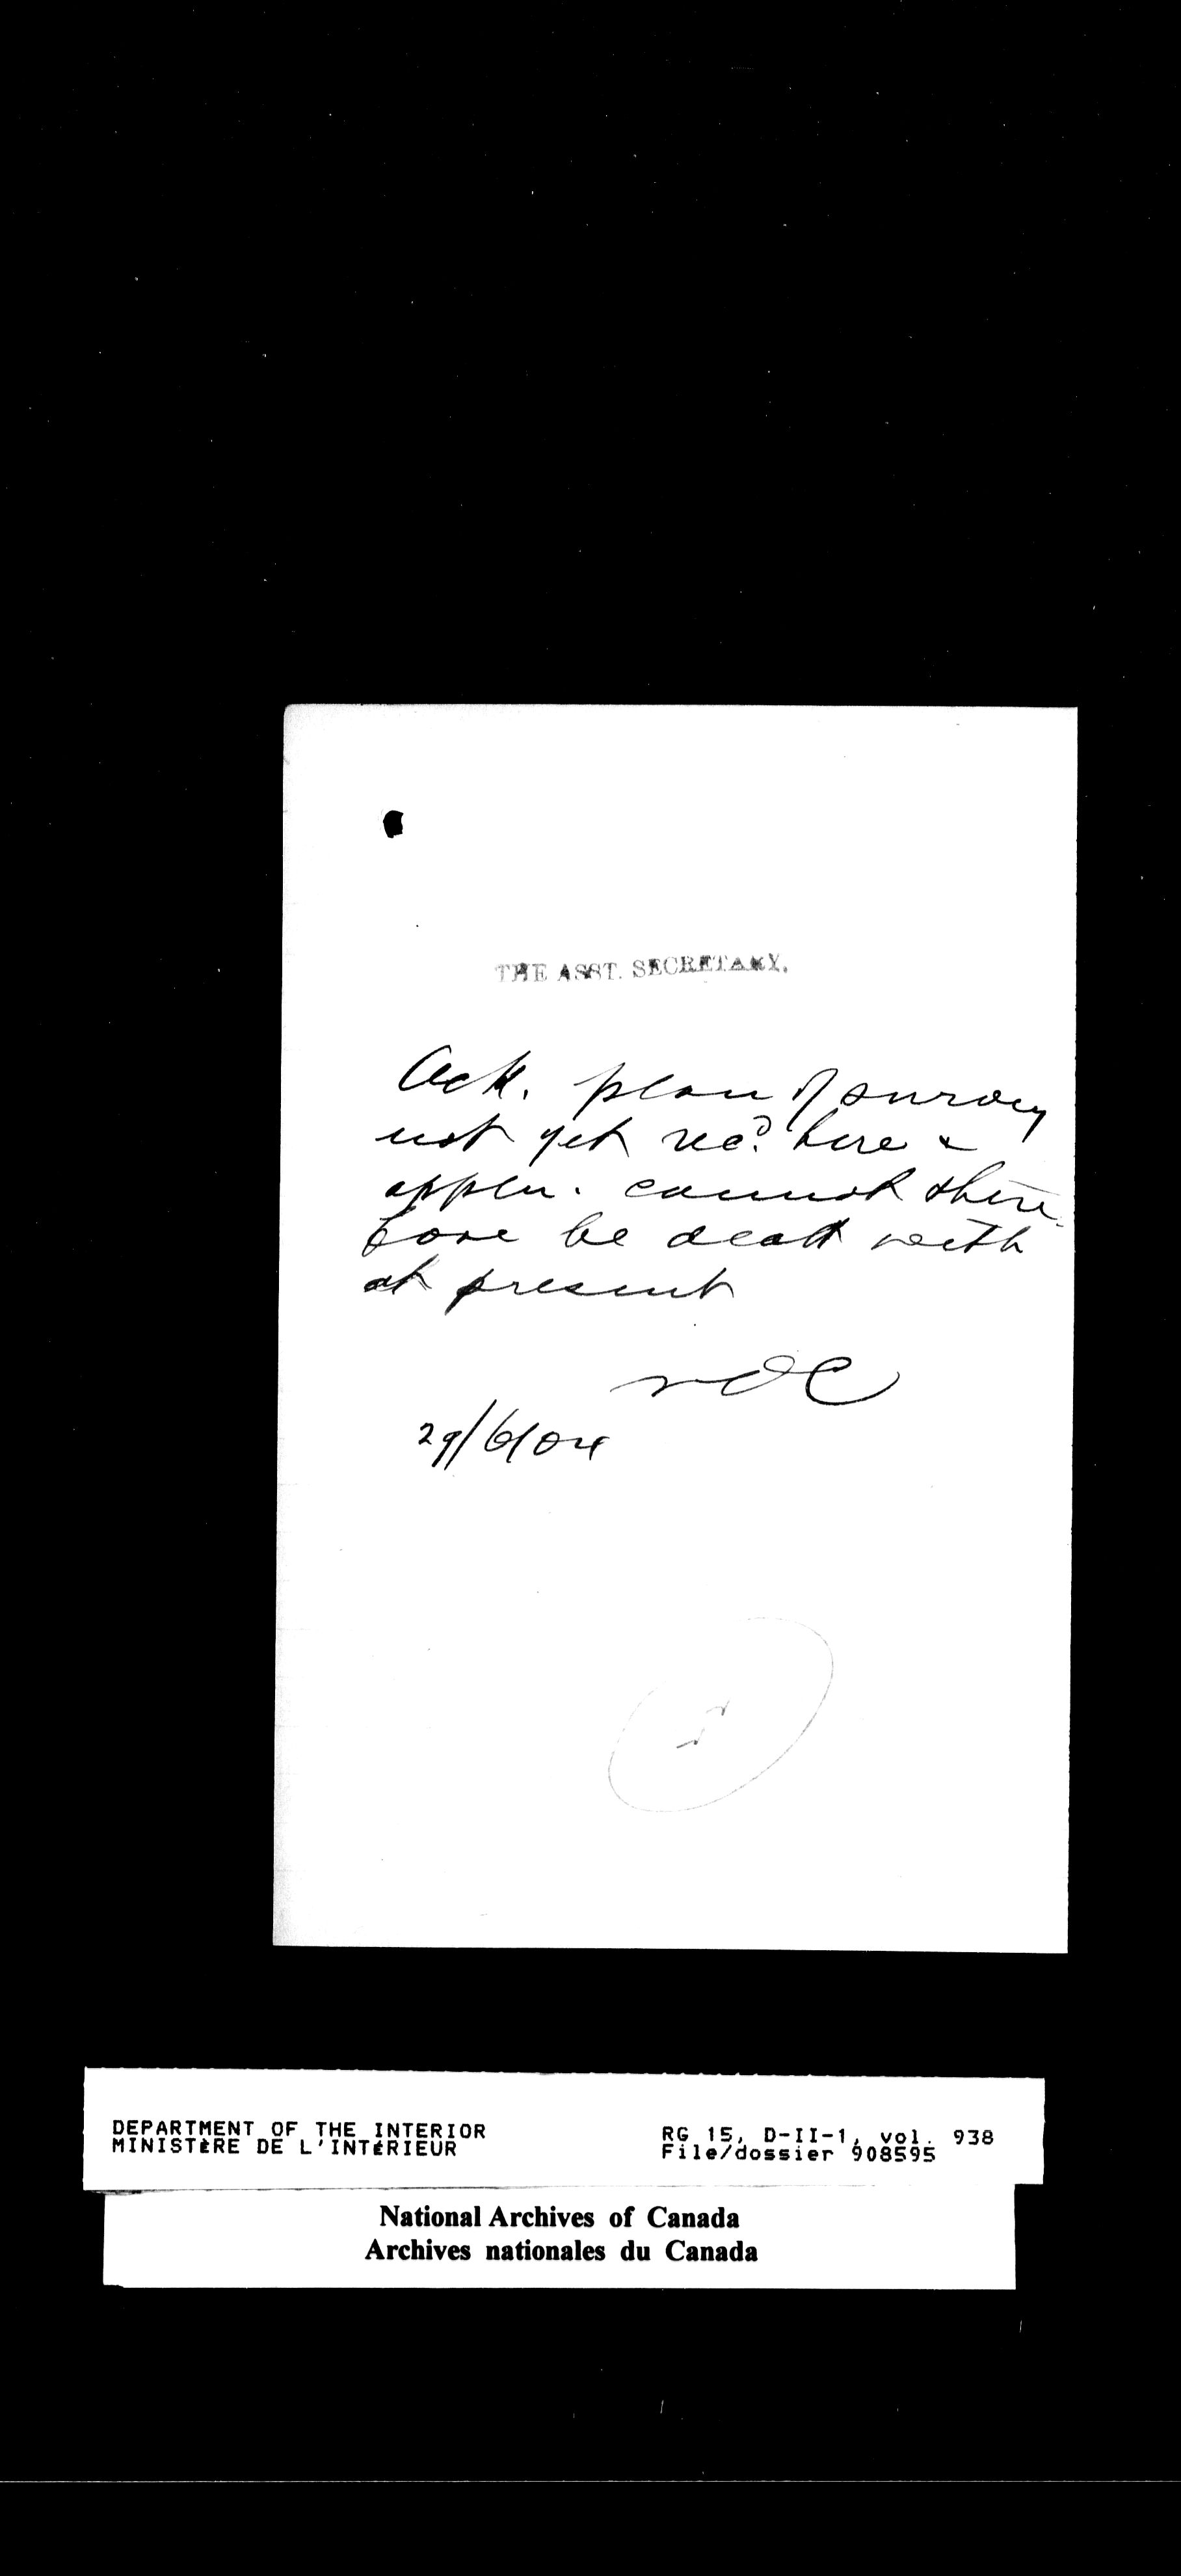 THE ASST. SECRETARY.
Ack. plan of survey
not yet rec.d here &
appln. cannot there-
fore be dealt with
at present
29/6/04
DEPARTMENT OF THE INTERIOR
MINISTÈRE DE L'INTÉRIEUR
RG 15, D-II-1, vol. 938
File/dossier 908595
National Archives of Canada
Archives nationales du Canada